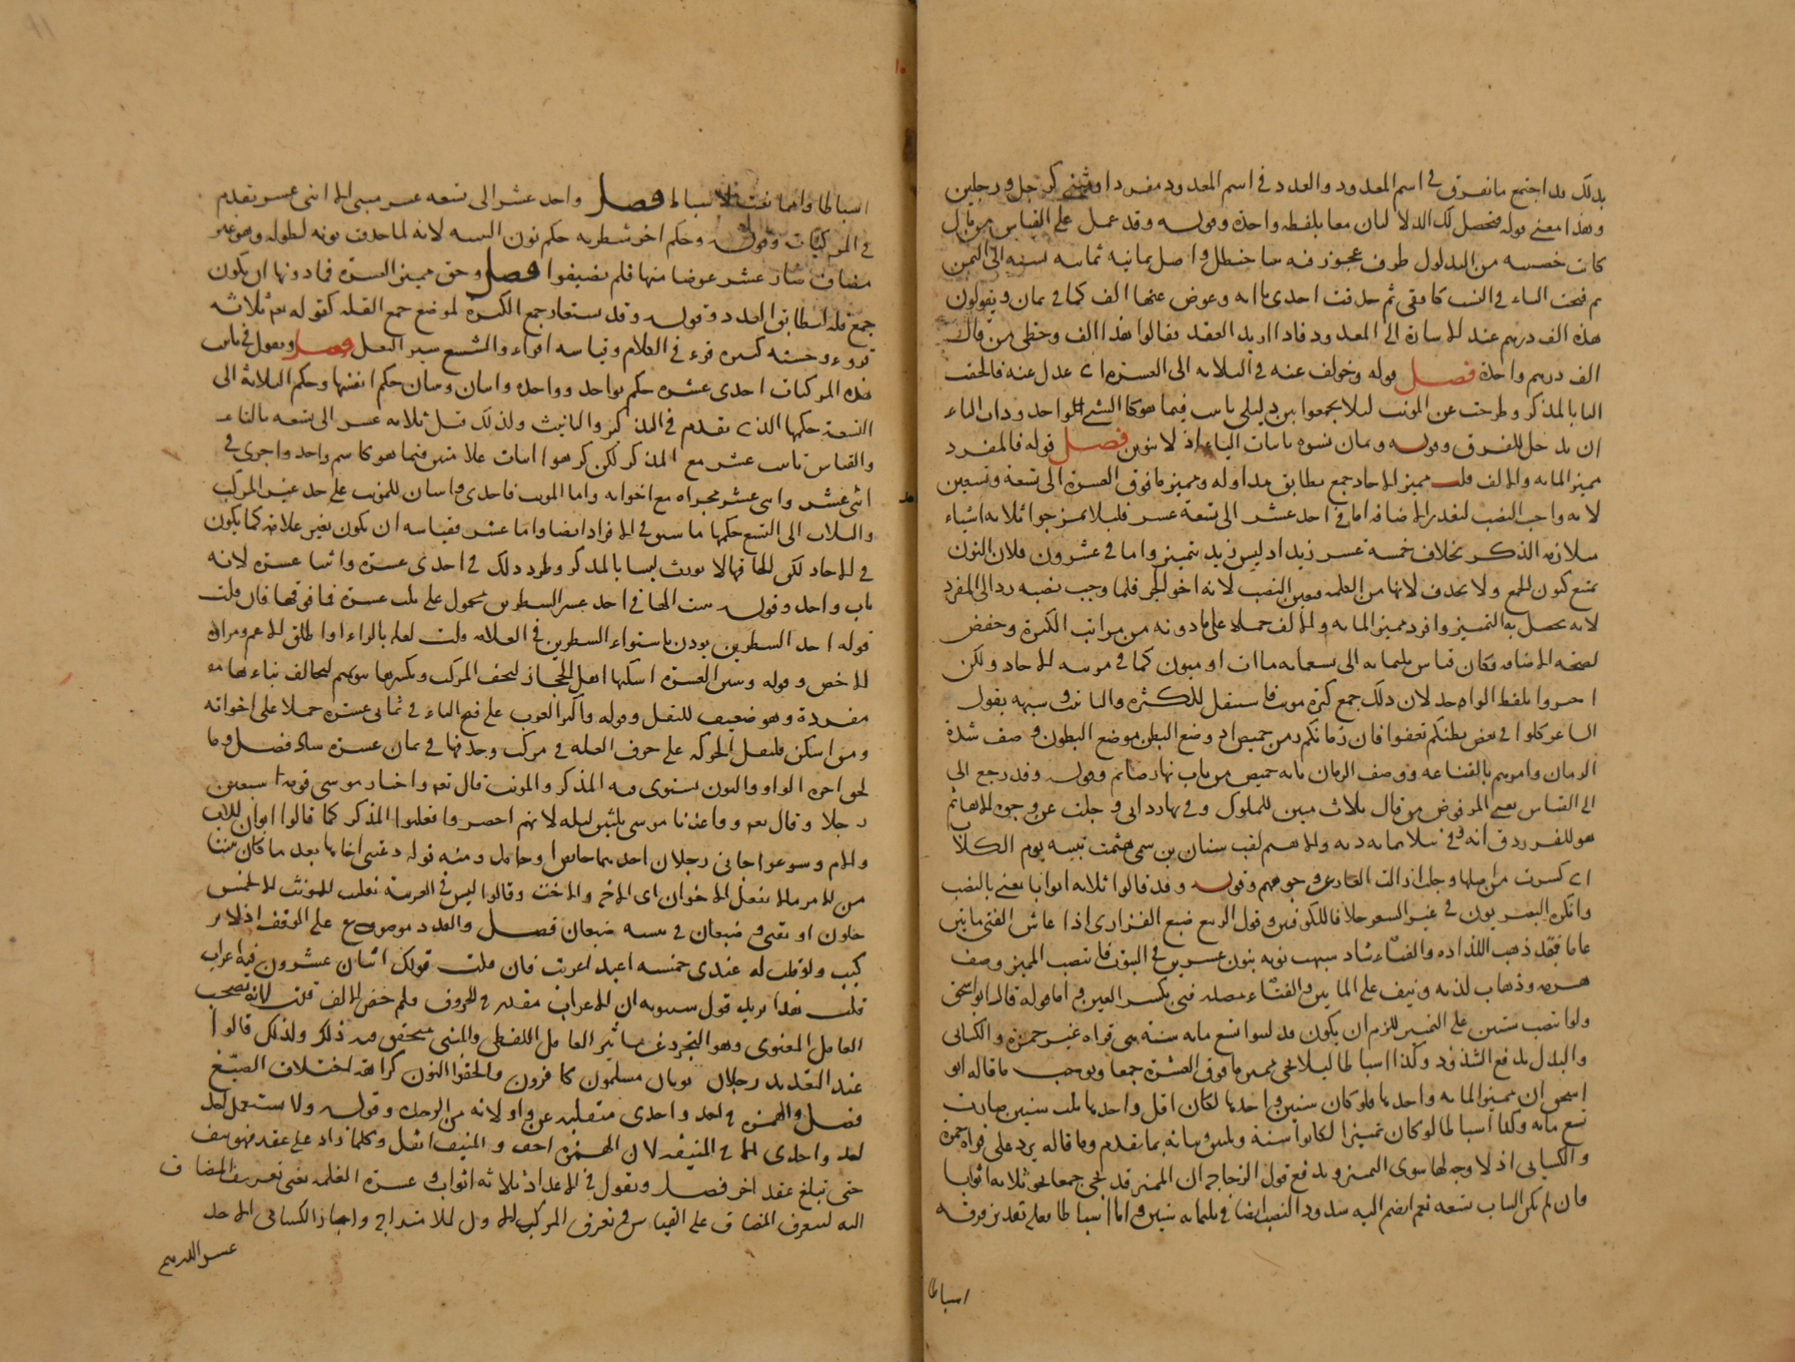 بذلك قد اجتمع ما تفرق في اسم المعدود والعدد في اسم المعدود مفردا ومثنى كرجل ورجلين
وهذا معنى قوله فتحصل لك الدلالتان معا بلفظه واحدة وقوله وقد عمل على القياس من قال
كان خصييه من التدلدل ظرف عجوز فيه ثنتا حنظل واصل ثمانية ثمانيه نسبة الى الثمن
ثم فتحت الثاء في النسب ثم حذفت احدى ياايه وعوض عنها الف كما في يمان ويقولون
هذه الف درهم عند الاشارة الى المعدود فاذا اريد العقد فقالوا هذا الف وخطى من قال
الف درهم واحدة فصل قوله وخولف عنه في الثلاثه الى العشرة اي عدل عنه فالحقت
التا بالمذكر وطرحت عن المونث ليلا يجمعوا بين دليلي تانيث فيما هو كالشي الواحد وذات التاء
ان تدخل للفرق وقوله وثمان نسوة باثبات الياء اذ لا تنوين فصل قوله فالمفرد
مميز المايه والالف قلت مميز الاحاد جمع يطابق مدلوله ومميز ما فوق العشرة الى تسعة وتسعين
لانه واجب النصب لتعذر الاضافه اما في احد عشر الى تسعة عشر فليلا يمزجوا ثلاثه اشياء
متلازمه الذكر بخلاف خمسة عشر زيد اذ ليس زيد بتمييز واما في عشرون فلان النون
تمنع كنون الجمع ولا تحذف لانها من الكلمه فتعين النصب لانه اخو الجر فلما وجب نصبه رد الى المفرد
لانه يحصل به التمييز وافرد مميز المايه والالف حملا على ما دونه من مراتب الكثرة وخفض
لصحه الاضافه وكان قياس ثلثمايه الى تسعمايه ماات او ميون كما في مرتبه الاحاد ولكن
اجتزوا بلفظ الواحد لان ذلك جمع كثرة مونث فاستثقل للكثرة والتانيث وشبهه بقول
الشاعر كلوا في بعض بطنكم تعفوا فان زمانكم زمن خميص اذ وضع البطن موضع البطون وصف شدة
الزمان وامرهم بالقناعه ووصف الزمان بانه خميص من باب نهاره صايم وقوله وقد رجع الى
الى القياس المرفوض من قال ثلاث مئين للملوك وفي بها رداي وجلت عن وجوه الاهاتم
هو للفرزدق وانه في ثلاثمايه ديه والاهتم لقب سنان بن سمي هتمت ثنيته يوم الكلاب
اي كسرت من اصلها وجلت ازالت العار عن وجوههم وقوله وقد قالوا ثلاثه اثوابا يعني بالنصب
وانكره البصريون في غير الشعر خلافا للكوفيين وقول الربيع بن ضبع الفزاري اذا عاش الفتى مايتين
عاما فقد ذهب اللذاذه والفتاء شاذ شبهت نونه بنون عشرين في الثبوت فانتصب المميز وصف
هرمه وذهاب لذته ونيف على المايتين والفتاء مصدر فتي بكسر العين واما قوله قال ابو اسحق
ولو انتصب سنين على التمييز للزم ان يكون قد لبثوا تسع مايه سنة هي قراه غير حمزة والكسائي
والبدل يدفع الشذوذ وكذا اسباطا ليلا يجي مميز ما فوق العشرة جمعا ويوجب ما قاله ابو
اسحق ان مميز المايه واحد بها فلو كان سنين واحد بها لكان اقل واحد بها ثلث سنين صارت
تسع مايه وكذا اسباطا لو كان تمييزا لكانوا ستة وثلثين وبيانه بما تقدم وما قاله يرد على قراه حمزة
والكسائي اذ لا وجه لها سوى التمييز ويدفع قول الزجاج ان المميز قد يجي جمعا نحو ثلاثه اثوابا
فان لم يكن الباب تسعه نعم انضم اليه شذوذ النصب ايضا في ثلثمايه سنين واما اسباطا فعلى تقدير فرقه
اسباطا
اسباطا وانما نعت لاسباطا فصل واحد عشر الى تسعه عشر مبني الا اثنى عشر تقدم
في المركبات وقوله وحكم اخر شطريه حكم نون التثنيه لانه لما حذف نونه لطوله وهو غير
مضاف صار عشر عوضا منها فلم يضيفوا فصل وحق مميز العشرة فما دونها ان يكون
جمع قله ليطابق العدد وقوله وقد يستعار جمع الكثرة لموضع جمع القله كقوله تعالى ثلاثه
قروء وحسنه كثرة قروء في الكلام وقياسه اقراء والشسع سير النعل فصل وتقول في تانيث
هذه المركبات احدى عشرة حكم واحد وواحدة واثنان واثنتان حكم انفسها وحكم الثلاثة الى
التسعة حكمها الذي تقدم في المذكر والتانيث ولذلك قيل ثلاثه عشر الى تسعه بالتاء
والقياس تانيث عشر مع المذكر لكن كرهوا اثبات علامتين فيما هو كاسم واحد واجرى في
اثني عشر واثنى عشر مجراه مع اخواته واما المونث فاحدى واثنتان للمونث على حد غير المركب
والثلاث الى التسع حكمها ما سبق في الافراد ايضا واما عشر فقياسه ان يكون بغير علامة كما يكون
في الاحاد لكن الحاقها لا يورث لبسا بالمذكر وطرد ذلك في احدى عشرة واثنتا عشرة لانه
باب واحد وقوله شبه الحا في احد عشر الشطرين محمول على ثلث عشرة فما فوقها فان قلت
قوله احد الشطرين يوذن باستواء الشطرين في العلامه قلت لعله بالراء او اطلق الاعم ومراده
الاخص وقوله وشين العشرة اسكنها اهل الحجاز ليخف المركب ويكسرها بنو تميم ليخالف بناءها
مفردة وهو ضعيف للثقل وقوله واكثر العرب على فتح الياء في ثماني عشرة حملا على اخواته
ومن اسكن فلثقل الحركه على حرف العله في مركب وحذفها في ثمان عشرة شاذ فصل وما
لحق اخره الواو والنون يستوى فيه المذكر والمونث قال تعالى واختار موسى قومه سبعين
رجلا وقال تعالى وواعدنا موسى ثلثين ليله لانهم اختصروا فغلبوا المذكر كما قالوا ابوان للاب
والام وسوعوا جاني رجلان احدهما حايض وحامل ومنه قوله دعتني اخاها بعد ما كان بيننا
من الامر ما لا يفعل الاخوان اي الاخ والاخت وقالوا ليس في العربية تغليب المونث الا لخمس
خلون او بقين وضبعان في تثنيه ضبعان فصل والعدد موضوع على الوقف اذ لا تر
كيب ولو قلت له عندي خمسه اعبد اعربت فان قلت قولك اثنان عشرون فيه اعراب
قلت هذا يريد قول سيبويه ان الاعراب مقدر في الحروف فلم خفض الالف قلت لانه بصحب
العامل المعنوى وهو التجرد عن ساير العامل اللفظي والمثنى متحقق فيه ذلك ولذلك قالوا
عند التعديد رجلان ثوبان مسلمون كافرون والحقوا النون كراهة اختلاف الصيغ
فصل والهمزة في احد واحدى منقلبه عن واو لانه من الوحدة وقوله ولا يستعمل احد
احد واحدى الا في المنيف لان الهمزة اخف والمنيف اثقل وكلما زاد على عقد فهو نيف
حتى تبلغ عقد اخر فصل وتقول في الاعداد ثلاثه اثواب وعشرة الغلمه يعني تعريف المضاف
اليه لتعرف المضاف على القياس وتعرف المركب الاول للامتزاج واجاز الكسائي الاحد
عشر الدرهم